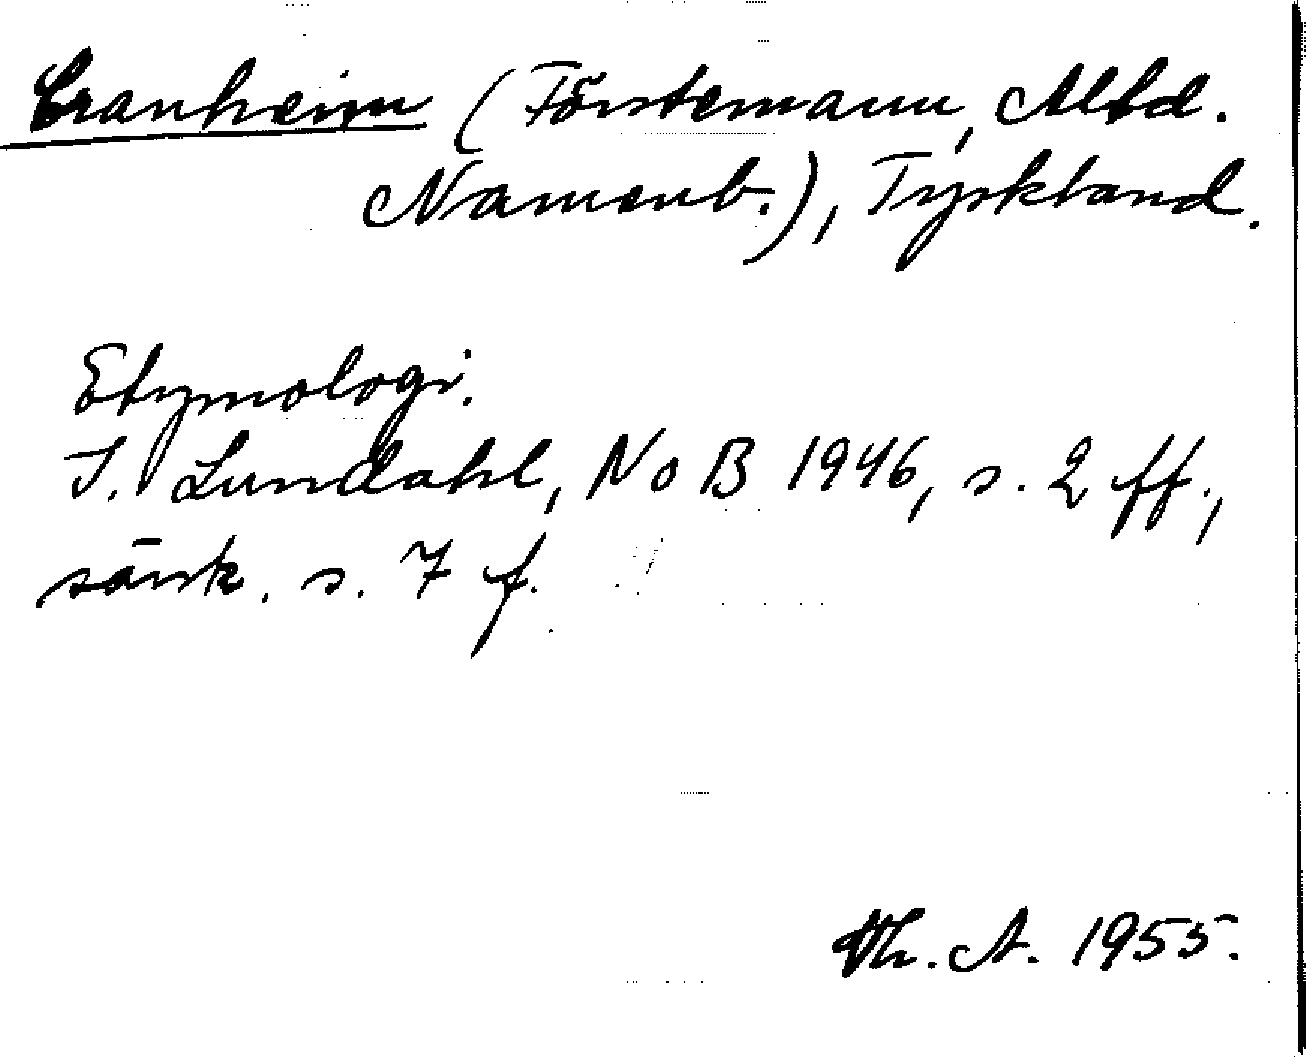 Cranheim (Förstemann, Altd.
Namenb.), Tyskland.
Etymologi.
I. Lundahl, NoB 1946, s. 2 ff.,
särsk. s. 7 f.
Th. A. 1955.